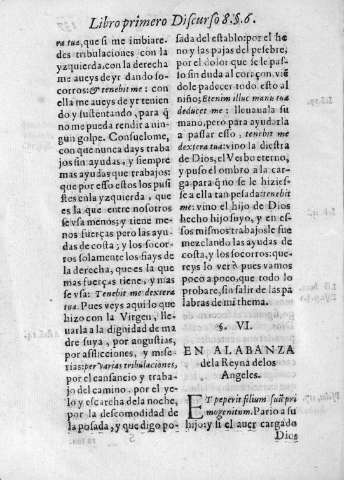 Libro primero Discurso 8.§.6.
ra tua, que si me imbiare-
des tribulaciones con la
yzquierda, con la derecha
me aueys de yr dando so-
corros: & tenebit me: con
ella me aueys de yr tenien
do y sustentando, para q̃
no me pueda rendir a nin-
gun golpe. Consuelome,
con que nunca days traba
jos sin ayudas, y siempre
mas ayudas que trabajos:
que por esso estos los pusi
stes en la yzquierda, que
es la que entre nosotros
se vsa menos: y tiene me-
nos fuerças pero las ayu-
das de costa; y los socor-
ros solamente los fiays de
la derecha, que es la que
mas fuerças tiene, y mas
se vsa: Tenebit me dextera
tua. Pues veys aqui lo que
hizo con la Virgen, lle-
uarla a la dignidad de ma
dre suya, por angustias,
por aflicciones, y mise-
rias: per varias tribulaciones,
por el cansancio y traba-
jo del camino, por el ye-
lo y escarcha de la noche,
por la descomodidad de
la posada, y que digo po-
sada del establo: por el he
no y las pajas del pesebre,
por el dolor que se le pas-
so sin duda al coraçon, viẽ
dole padecer todo esto al
niño; Etenim illuc manu tua
deducet me: lleuauala su
mano, pero para ayudarla
a passar esso, tenebit me
dextera tua: vino la diestra
de Dios, el Verbo eterno,
y puso el ombro a la car-
ga para q̃ no se le hizies-
se a ella tan pesada: tenebit
me: vino el hijo de Dios
hecho hijo suyo, y en es-
sos mismos trabajos le fue
mezclando las ayudas de
costa, y los socorros: que-
reys lo ver? pues vamos
poco a poco, que todo lo
probare, sin salir de las pa
labras de mi thema.
§. VI.
EN ALABANZA
de la Reyna de los
Angeles.
ET peperit filium suũ pri
mogenitum. Pario a su
hijo: y si el auer cargado
S
Dios